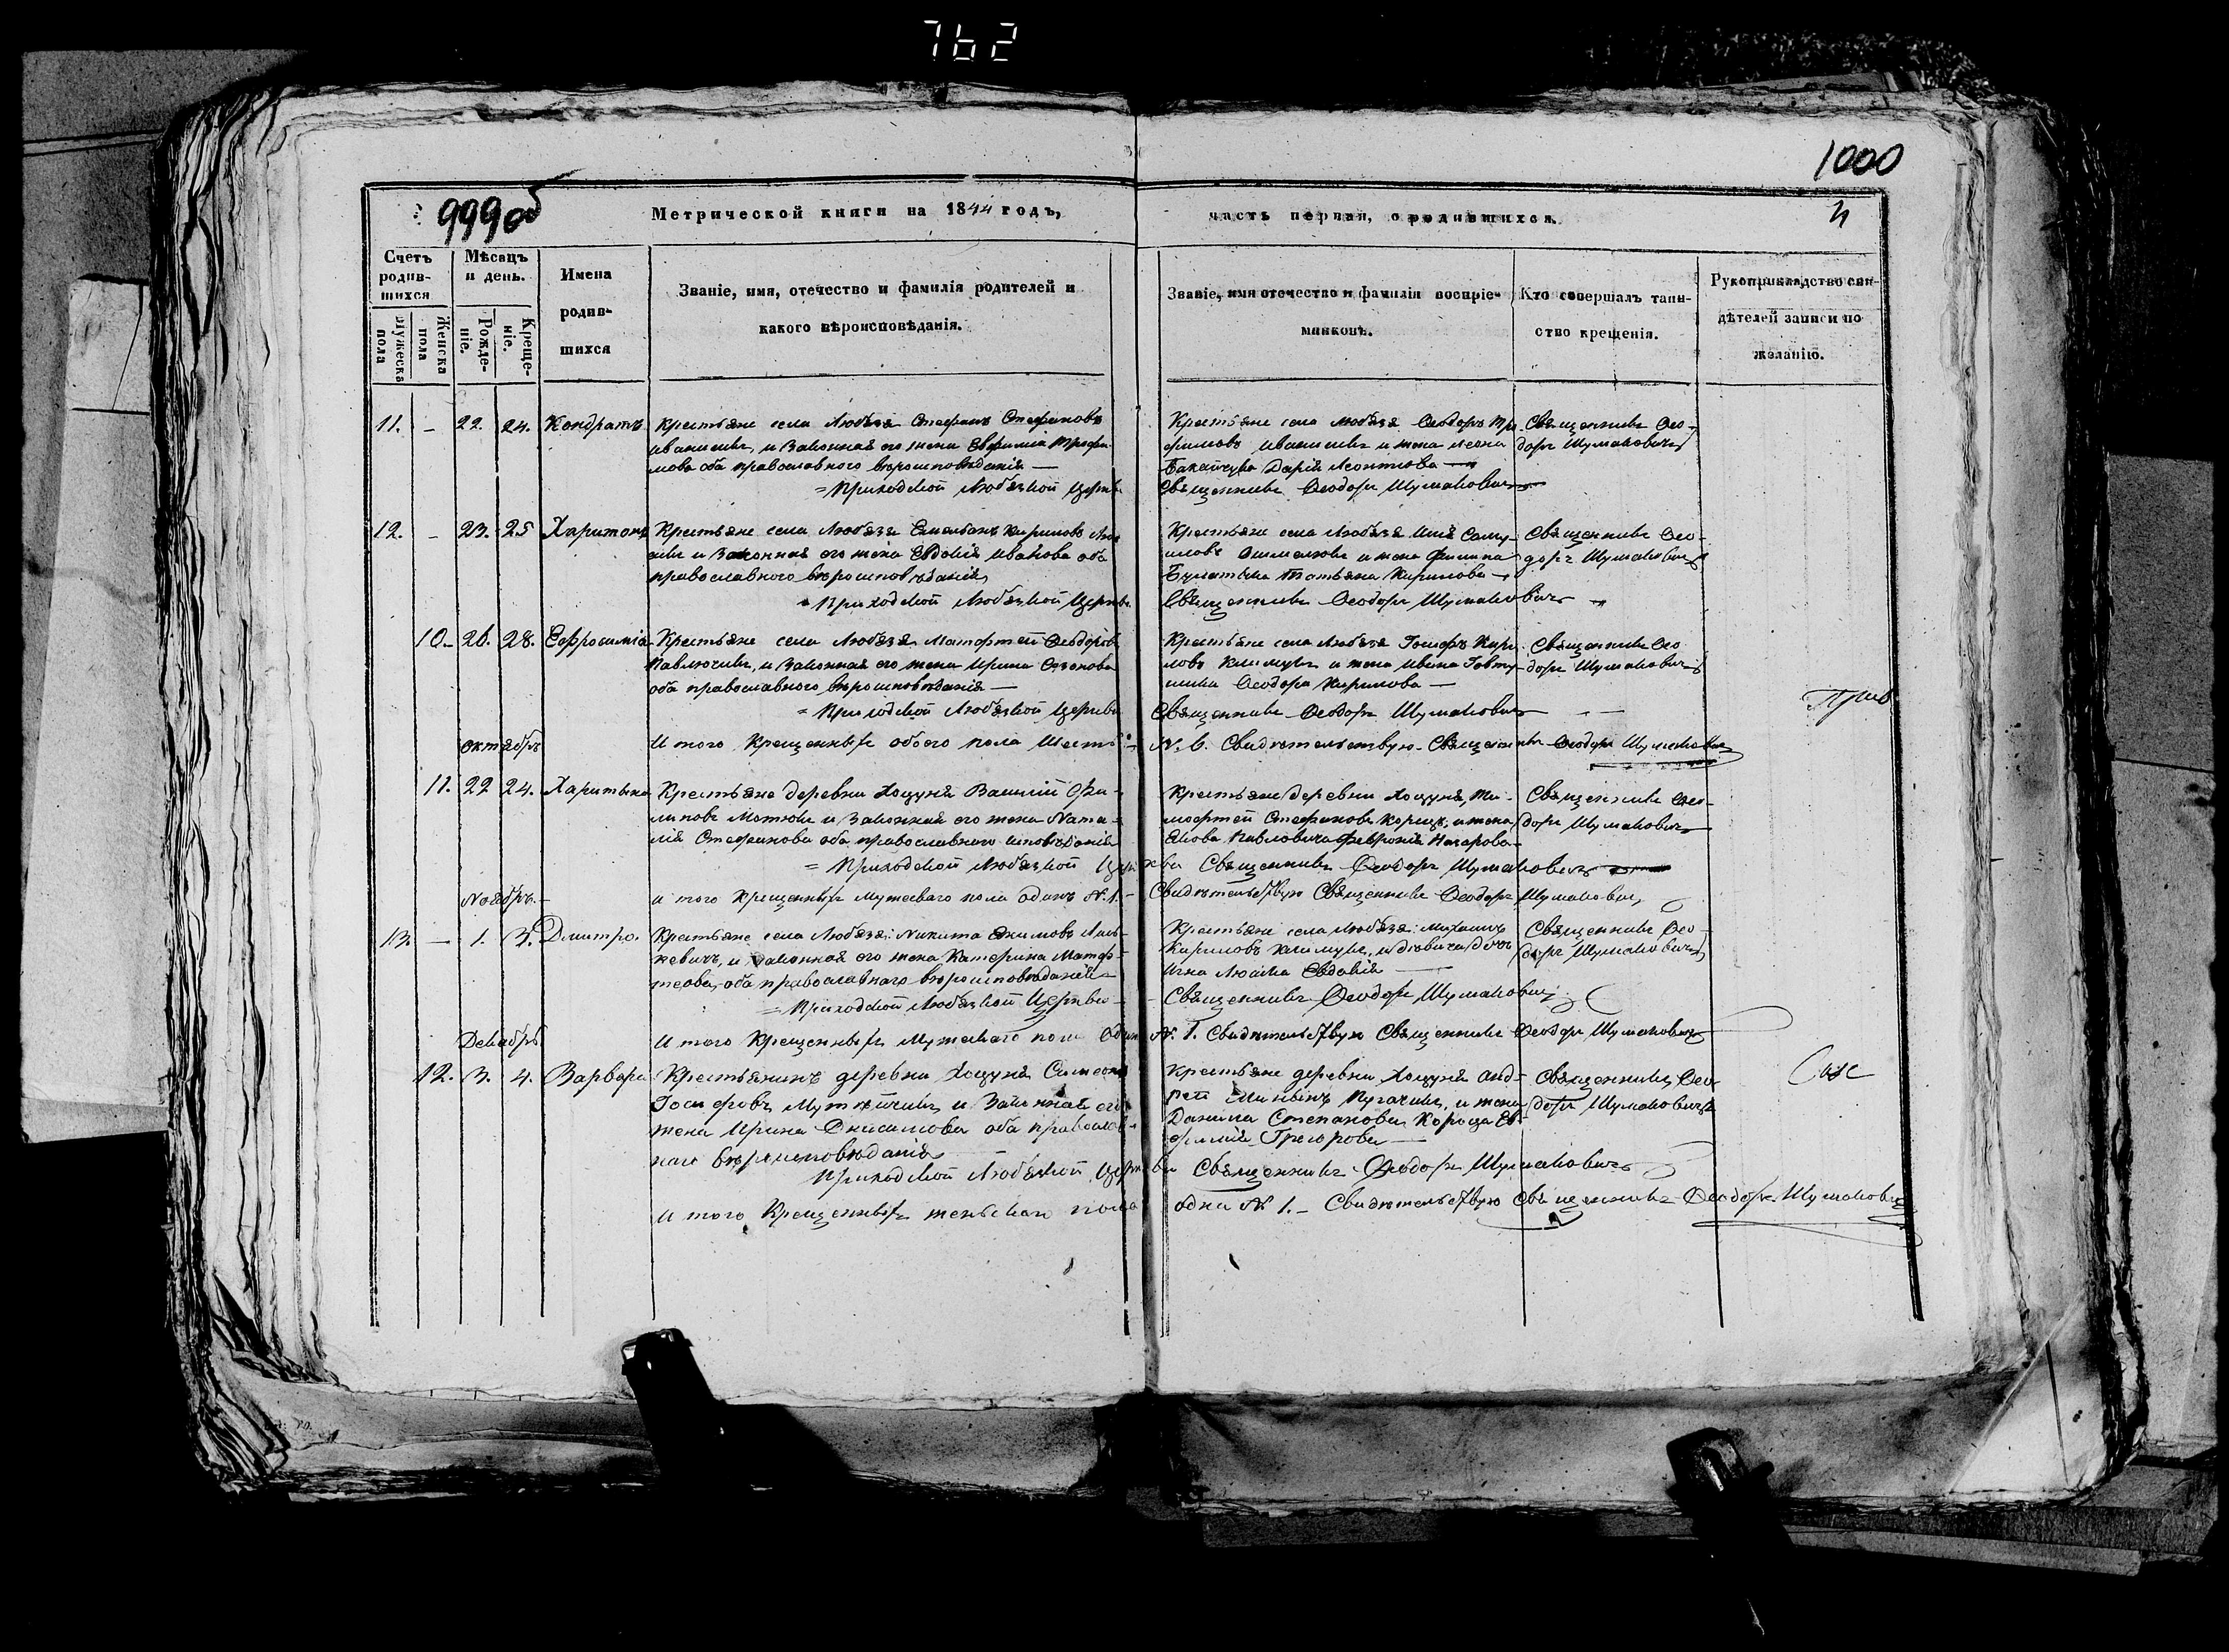 762
1000
999об
Метрической книги на 1844 годъ,
часть первая, о родившихся.
4
Счетъ родив-шихся
Мужеска пола
Женска пола
Мѣсяцъ и день.
Рожде-ніе.
Креще-ніе.
Имена
родив-
шихся
Званіе, имя, отечество и фамилія родителей и
какого вѣроисповѣданія.
Званіе, имя отечество и фамилія воспріе-
мниковъ.
Кто совершалъ таин-
ство крещенія.
Рукоприкладство сви-
дѣтелей записи по
желанію.
11. – 22. 24. Кондратъ
Крестьяне села Любязя Стефанъ Стефановъ
Иванисикъ, и Законная его жена Евфимія Трофи-
мова оба православного вѣроисповѣданія —
= Приходской Любязкой Церкви
Крестьяне села Любязя Ѳеодоръ Тро
фимовъ Иванисикъ и жена Леона
Дарія Леонтіова —
Священникъ Ѳеодоръ Шумановичъ
Священникъ Ѳео-
доръ Шумановичъ
12. – 23. 25 Харитонъ
Крестьяне села Любязя Емельянъ Кириловъ
и Законная его жена Евдокія Иванова оба
православного вѣроисповѣданія
Приходской Любязкой Церкви
Крестьяне села Любязя Илія Саму-
иловъ и жена Филипа
Татьяна Кирилова —
Священникъ Ѳеодоръ Шумановичъ
Священникъ Ѳео-
доръ Шумановичъ
10 – 26. 28. Ефросимія
Крестьяне села Любязя Матофтей Ѳеодоровъ
Павлючикъ, и Законная его жена Ирина Созонова
оба православного вѣроисповѣданія —
= Приходской Любязкой Церкви
Крестьяне села Любязя Іосифъ Кири
ловъ Климукъ и жена Ивана
Ѳеодора Кирилова —
Священникъ Ѳеодоръ Шумановичъ
Священникъ Ѳео
доръ Шумановичъ
И того Крещенныхъ обоего пола Шесть
N. 6. Свидѣтельствую Священникъ Ѳеодоръ Шумановичъ
Октябрь
11. 22 24. Харитына
Крестьяне деревни Хоцуня Василій Фи-
липовъ Мотюкъ и Законная его жена Ната-
лія Стефанова оба православного исповѣданія
= Приходской Любязкой Церкви Священникъ Ѳеодоръ Шумановичъ
Крестьяне деревни Хоцуня, Ти-
мофтей Стефановъ Корецъ, и жена
Якова Павловича Февронія Назарова
Священникъ Ѳео-
доръ Шумановичъ
и того Крещенныхъ Мужеваго пола одинъ N. 1. –
Свидѣтельствую Священникъ Ѳеодоръ Шумановичъ
Ноябрь. –
13. – 1. 3. Дмитро.
Крестьяне села Любязя: Никита Якимовъ
кевичъ, и Законная его жена Катерина Матоф-
теова, оба православнаго вѣроисповѣданія
= Приходской Любязкой Церкви –
Крестьяне села Любязя: Михаилъ
Кириловъ Климукъ, и дѣвица дочь
Евдокія —
– Священникъ Ѳеодоръ Шумановичъ
Священникъ Ѳео-
доръ Шумановичъ
И того Крещенныхъ Мужескаго пола Одинъ
N. 1. Свидѣтельствую Священникъ Ѳеодоръ Шумановичъ
Декабрь
12. 3. 4. Варвара
Крестьянинъ деревни Хоцуня Симеонъ
Іосифовъ и Законная его
жена Ирина Онисимова оба православ-
наго вѣроисповѣданія
Приходской Любязкой Церкви Священникъ Ѳеодоръ Шумановичъ
Крестьяне деревни Хоцуня Анд-
рей Пугачикъ, и жена
Данила Степанова Кореца Ев-
фимія Грегорова —
Священникъ Ѳео
доръ Шумановичъ
И того Крещенныхъ женьскаго пола
одна N 1. – Свидѣтельствую Священникъ Ѳеодоръ Шумановичъ